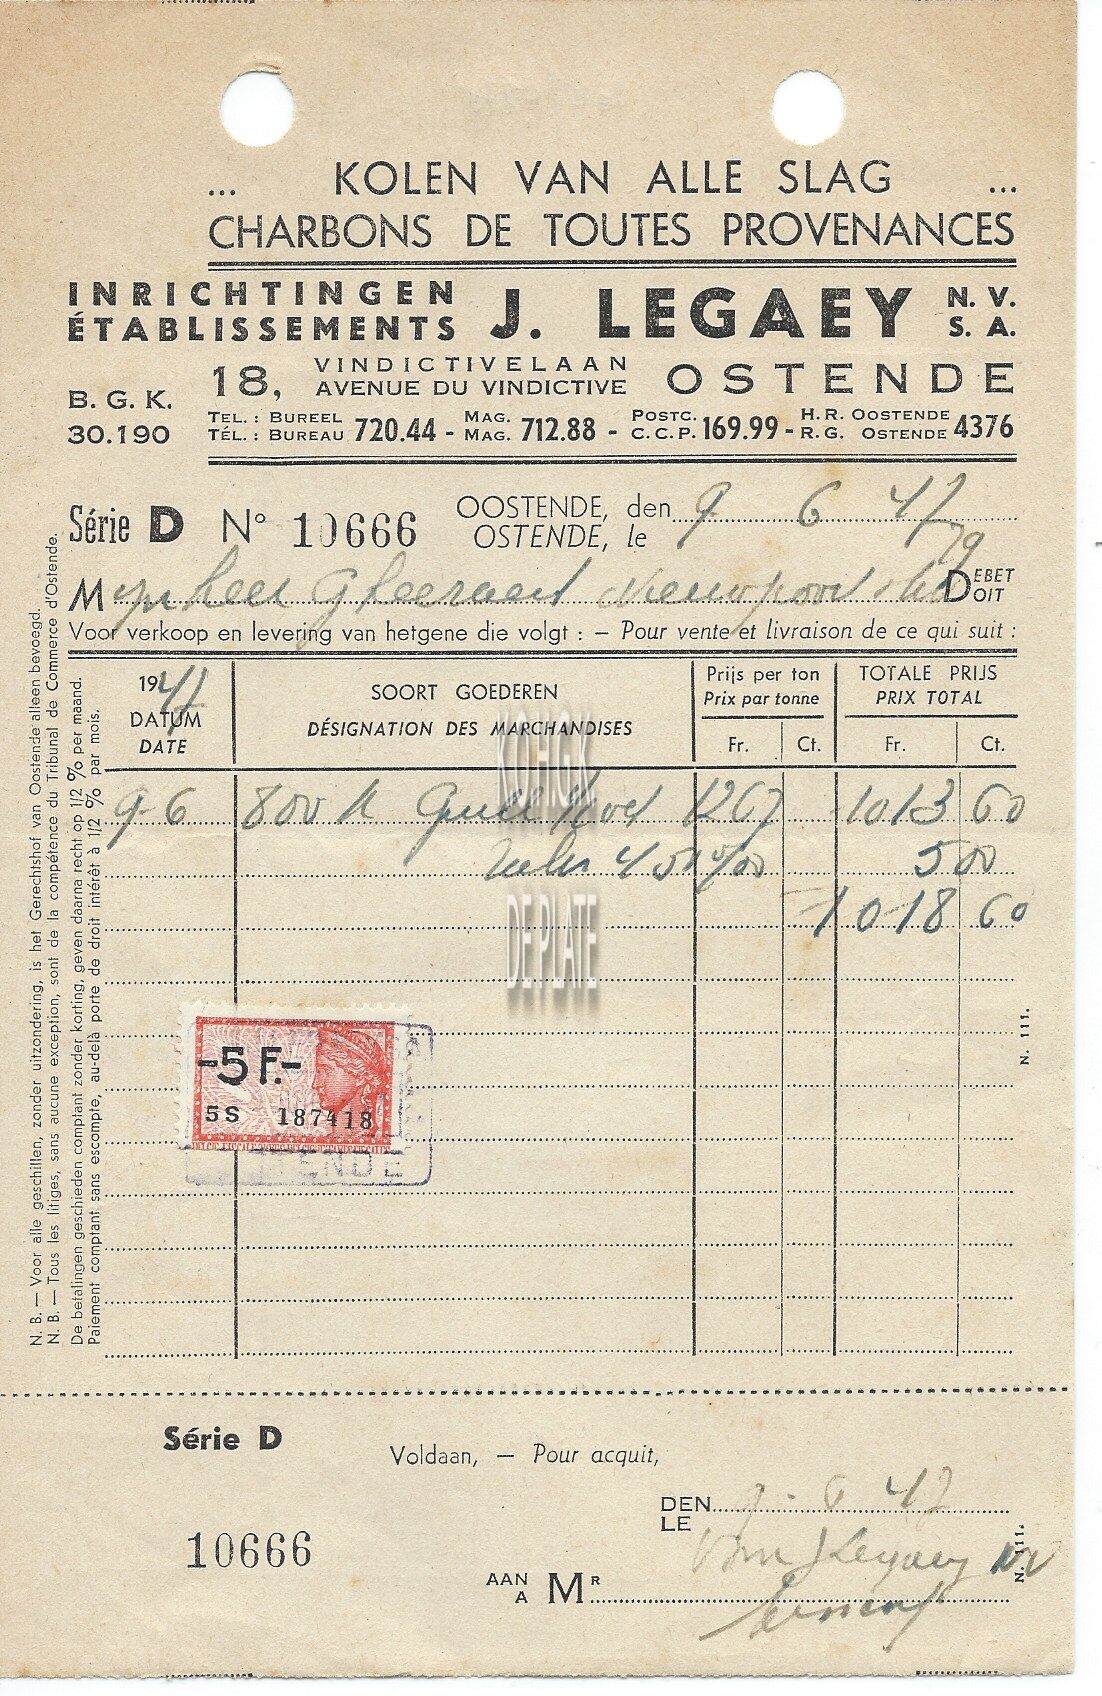 ... KOLEN VAN ALLE SLAG ...
CHARBONS DE TOUTES PROVENANCES
INRICHTINGEN
ÉTABLISSEMENTS
J. LEGAEY
N. V.
S. A.
B. G. K.
30.190
18,
VINDICTIVELAAN
AVENUE DU VINDICTIVE
OSTENDE
TEL. : BUREEL
TÉL. : BUREAU
720.44 -
MAG.
MAG.
712.88 -
POSTC.
C.C.P.
169.99 -
H.R. OOSTENDE
R.G. OSTENDE
4376
Série D N° 10666
OOSTENDE, den
OSTENDE, le
9 6 47
79
Mynheer Gheeraert
DEBET
DOIT
Voor verkoop en levering van hetgene die volgt : – Pour vente et livraison de ce qui suit :
1947
DATUM
DATE
SOORT GOEDEREN
DÉSIGNATION DES MARCHANDISES
Prijs per ton
Prix par tonne
Fr. Ct.
TOTALE PRIJS
PRIX TOTAL
Fr. Ct.
9-6 800 k 1267 1013 60
500
1018 60
KOHGK
DE PLATE
-5 F.-
5S 187418
N. B. — Voor alle geschillen, zonder uitzondering, is het Gerechtshof van Oostende alleen bevoegd.
N. B. — Tous les litiges, sans aucune exception, sont de la compétence du Tribunal de Commerce d'Ostende.
De betalingen geschieden comptant zonder korting, geven daarna recht op 1/2 % per maand.
Paiement comptant sans escompte, au-delà porte de droit intérêt à 1/2 % par mois.
N. 111.
Série D
Voldaan, — Pour acquit,
10666
DEN
LE
47
J Legaey NV
AAN
A
MR
N. 111.